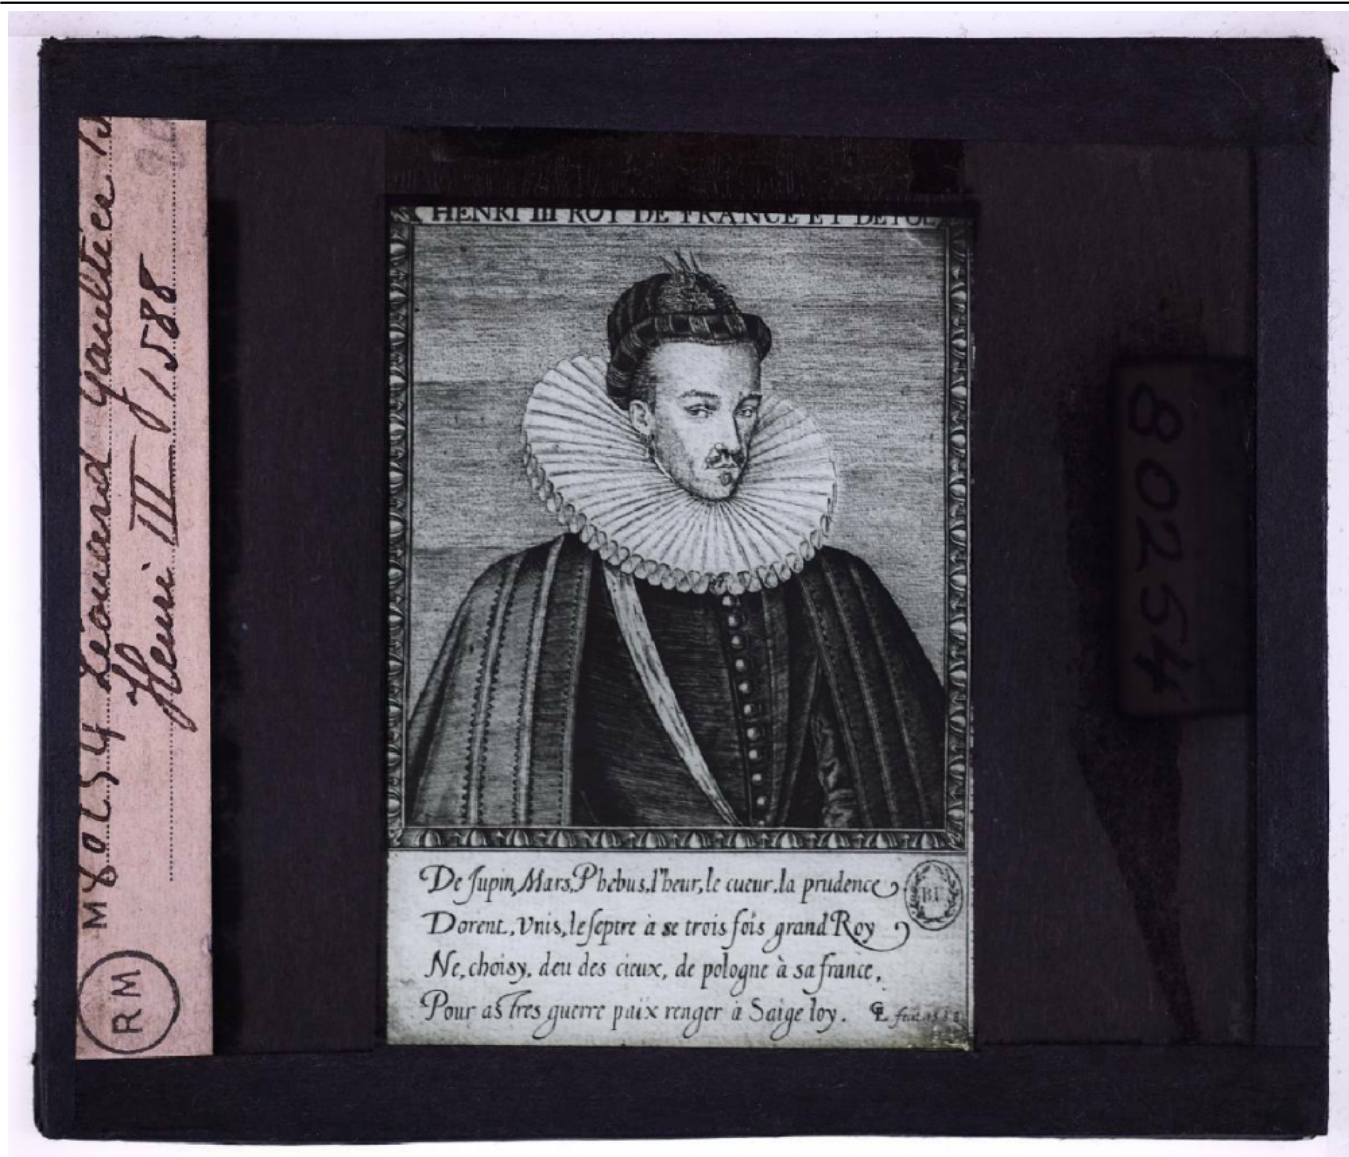 M 80254 Léonard Gaultier
Henri III 1588
RM
HENRI III ROY DE FRANCE ET DE POL
De Jupin, Mars, Phebus, l'heur, le cueur, la prudence
Dorent, Vnis, le septre à se trois fois grand Roy
Ne, choisy, deu des cieux, de pologne à sa france,
Pour astres guerre paix renger à Saige loy.
fecit
80254